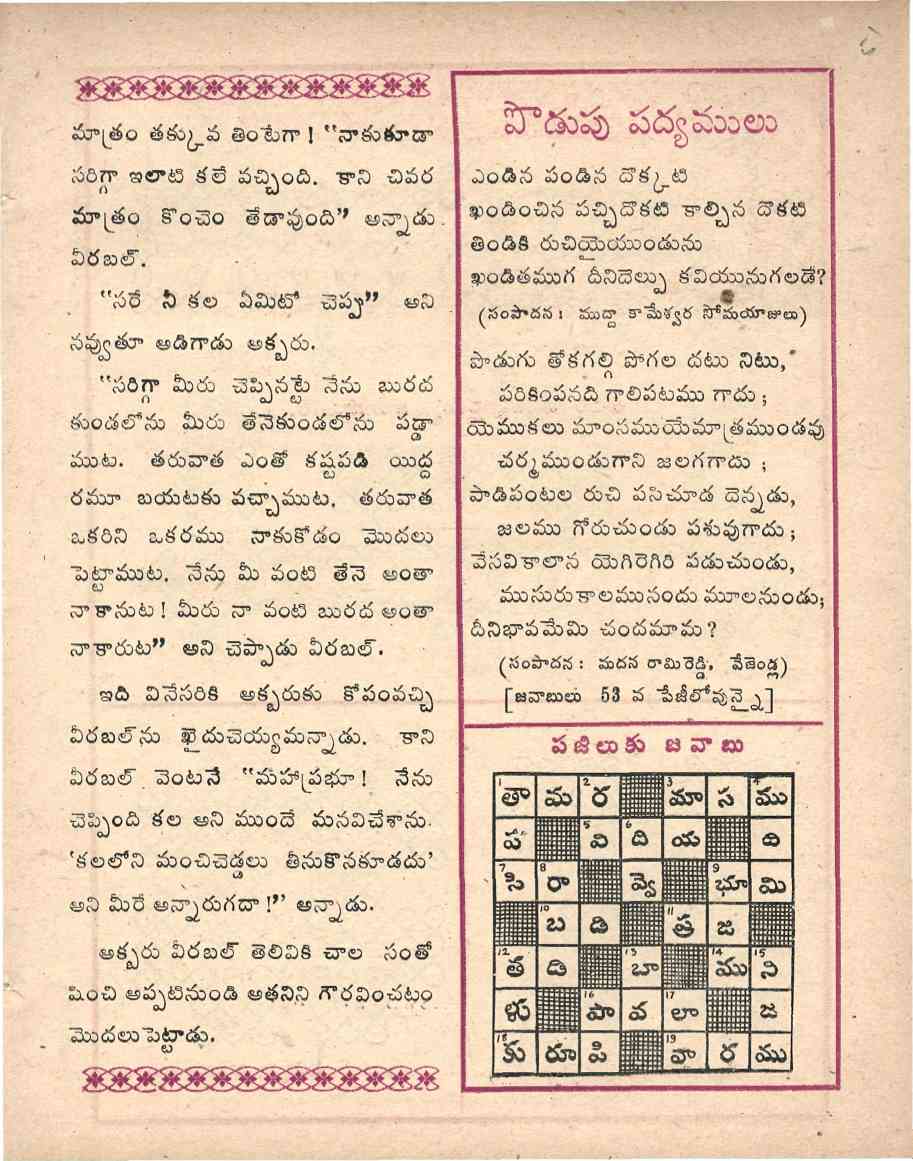 మాత్రం తక్కువ తింటేగా! “నాకుకూడా
సరిగ్గా ఇలాటి కలే వచ్చింది. కాని చివర
మాత్రం కొంచెం తేడావుంది” అన్నాడు
వీరబల్.
“సరే నీ కల ఏమిటో చెప్పు” అని
నవ్వుతూ అడిగాడు అక్బరు.
“సరిగ్గా మీరు చెప్పినట్టే నేను బురద
కుండలోను మీరు తేనెకుండలోను పడ్డా
ముట. తరువాత ఎంతో కష్టపడి యిద్ద
రమూ బయటకు వచ్చాముట. తరువాత
ఒకరిని ఒకరము నాకుకోడం మొదలు
పెట్టాముట. నేను మీ వంటి తేనె అంతా
నాకానుట! మీరు నా వంటి బురద అంతా
నాకారుట” అని చెప్పాడు వీరబల్.
ఇది వినేసరికి అక్బరుకు కోపంవచ్చి
వీరబల్‌ను ఖైదుచెయ్యమన్నాడు. కాని
వీరబల్ వెంటనే “మహాప్రభూ! నేను
చెప్పింది కల అని ముందే మనవిచేశాను.
‘కలలోని మంచిచెడ్డలు తీసుకొనకూడదు’
అని మీరే అన్నారుగదా!” అన్నాడు.
అక్బరు వీరబల్ తెలివికి చాల సంతో
షించి అప్పటినుండి అతనిని గౌరవించటం
మొదలుపెట్టాడు.
పొడుపు పద్యములు
ఎండిన పండిన దొక్కటి
ఖండించిన పచ్చిదొకటి కాల్చిన దొకటి
తిండికి రుచియైయుండును
ఖండితముగ దీనిదెల్పు కవియునుగలడే?
(సంపాదన: ముద్దా కామేశ్వర సోమయాజులు)
పొడుగు తోకగల్గి పోగల దటు నిటు,
పరికింపనది గాలిపటము గాదు;
యెముకలు మాంసముయేమాత్రముండవు
చర్మముండుగాని జలగగాదు;
పాడిపంటల రుచి పసిచూడ దెన్నడు,
జలము గోరుచుండు పశువుగాదు;
వేసవికాలాన యెగిరెగిరి పడుచుండు,
ముసురుకాలమునందు మూలనుండు;
దీనిభావమేమి చందమామ?
(సంపాదన: మదన రామిరెడ్డి, వేజెండ్ల)
[జవాబులు 53 వ పేజీలోవున్నై]
పజిలుకు జవాబు
1 తా మ 2 ర 3 మా స 4 ము
ప 5 వి 6 ది య ది
7 సి 8 రా వ్వె 9 భూ మి
10 బ డి 11 త్ర జ
12 త డి 13 బా 14 ము 15 ని
ళు 16 పా వ 17 లా జ
18 కు రూ పి 19 వా ర ము